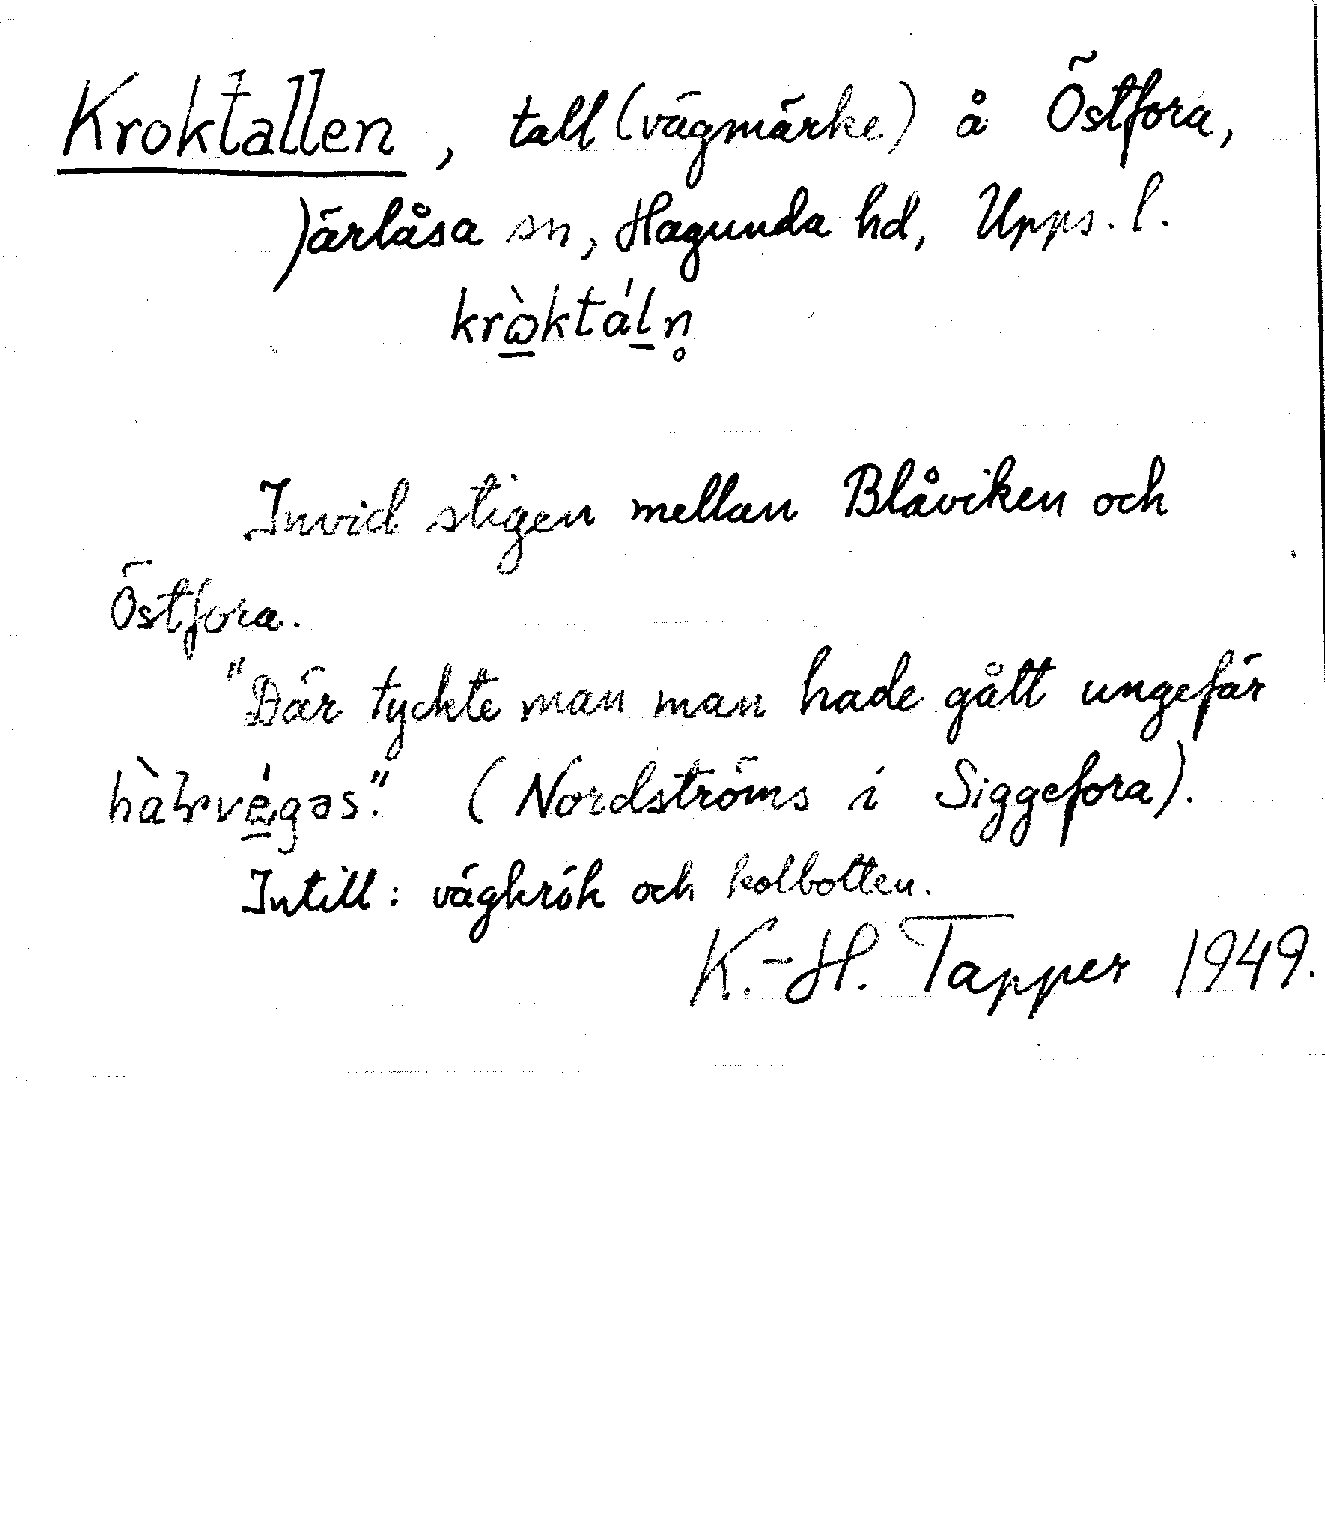 Kroktallen, tall (vägmärke) å Östfora,
Järlåsa sn, Hagunda hd, Upps. l.
krò̱ktáḻn̥
Invid stigen mellan Blåviken och
Östfora.
"Där tyckte man man hade gått ungefär
". (Nordströms i Siggefora).
Intill: vägkrök och kolbotten.
K.-H. Tapper 1949.